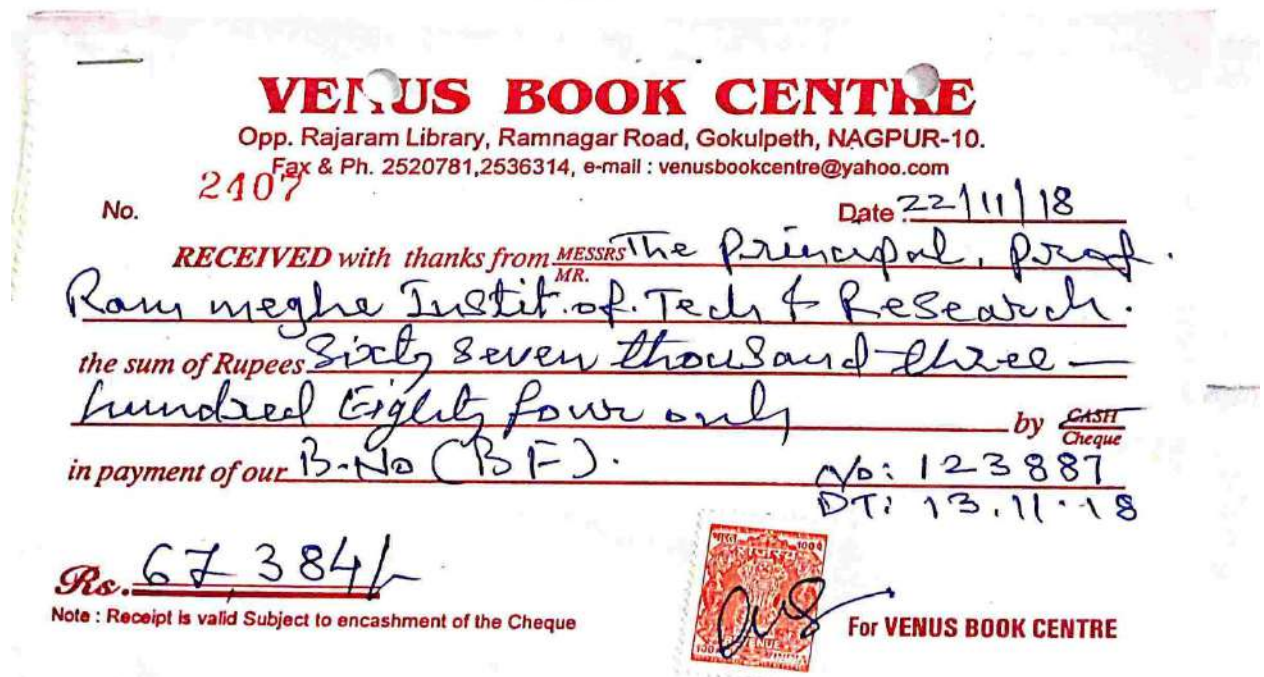 VENUS BOOK CENTRE
Opp. Rajaram Library, Ramnagar Road, Gokulpeth, NAGPUR-10.
Fax & Ph. 2520781,2536314, e-mail : venusbookcentre@yahoo.com
No. 2407 Date 22/11/18
RECEIVED with thanks from MESSRS MR. The Principal, Prof.
Ram meghe Instit. of. Tech & Research.
the sum of Rupees Sixty Seven thousand three —
hundred Eighty four only by CASH Cheque
in payment of our B-No (BF). No: 123887
DT: 13.11.18
Rs. 67,384/-
Note : Receipt is valid Subject to encashment of the Cheque
For VENUS BOOK CENTRE